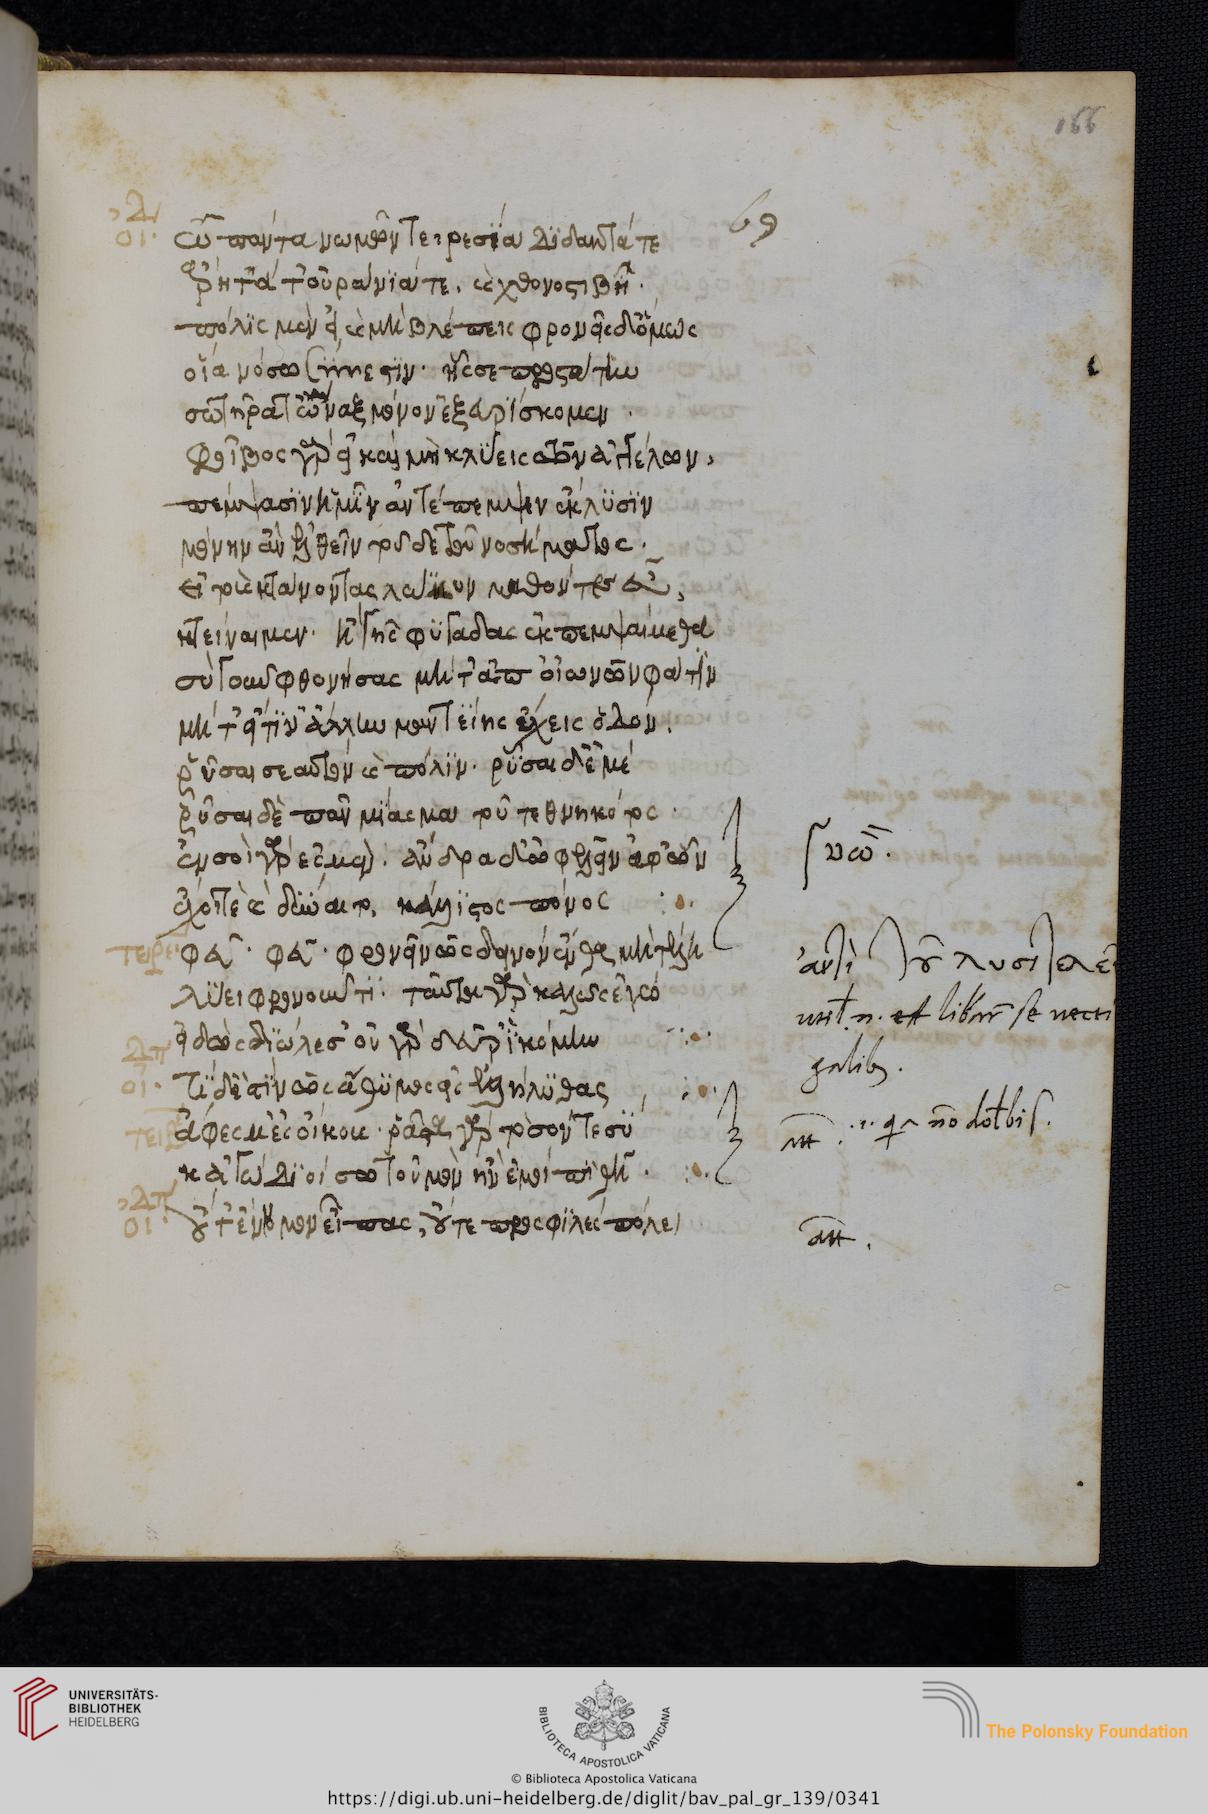 166
69
οι. ὦ πάντα νωμῶν Τειρεσία διδακτά τε
ἄρρητά τ' οὐράνιά τε, καὶ χθονοστιβῆ.
πόλιν μὲν εἰ καὶ μὴ βλέπεις φρονεῖς δ' ὅμως
οἵα νόσω σύνεστιν. ἧς σε προστάτην
σωτῆρά τ' ὦναξ μοῦνον ἐξευρίσκομεν.
φοῖβος γὰρ εἰ καὶ μὴ κλύεις τῶν ἀγγέλων,
πέμψασιν ἡμῖν ἀντέπεμψεν ἔκλυσιν
μόνην ἂν ἐλθεῖν τοῦδε τοῦ νοσήματος.
εἰ τοὺς κτανόντας λάϊον μαθόντες εὖ,
κτείναιμεν. ἢ γῆς φυγάδας ἐκπεμψαίμεθα
σὺ γοῦν φθονήσας μήτ' ἀπ' οἰωνῶν φάτιν
μήτ' εἴ τιν' ἄλλην μαντείης ἔχεις ὁδόν.
ῥῦσαι σεαυτὸν καὶ πόλιν. ῥῦσαι δ' ἐμέ
ῥῦσαι δὲ πᾶν μίασμα τοῦ τεθνηκότος.
ἐν σοὶ γάρ ἐσμεν. ἄνδρα δ' ὠφελεῖν ἀφ' ὧν
ἔχοι τε καὶ δύναιτο, κάλλιστος πόνος
τειρε φεῦ. φεῦ. φρονεῖν ὡς δεινὸν ἔνθα μὴ τέλη
λύει φρονοῦντι. ταῦτα γὰρ καλῶς ἐγώ
εἰδὼς διώλεσ' οὐ γὰρ δεῦρ' ἱκόμην
οι. τί δ' ἐστιν ὡς ἄθυμος εἰσελήλυθας
τειρε ἄφες μ' ἐς οἴκους. ῥᾷστα γὰρ τὸ σόν τε σύ
κἀγὼ διοίσω τοὐμὸν ἢν ἐμοὶ πίθῃ.
οι. οὔτ' ἔννομον εἶπας, οὔτε προσφιλὲς πόλει
ἀντὶ τοῦ λυσιτελεῖ
att.
UNIVERSITÄTS-
BIBLIOTHEK
HEIDELBERG
BIBLIOTECA APOSTOLICA VATICANA
The Polonsky Foundation
© Biblioteca Apostolica Vaticana
https://digi.ub.uni-heidelberg.de/diglit/bav_pal_gr_139/0341